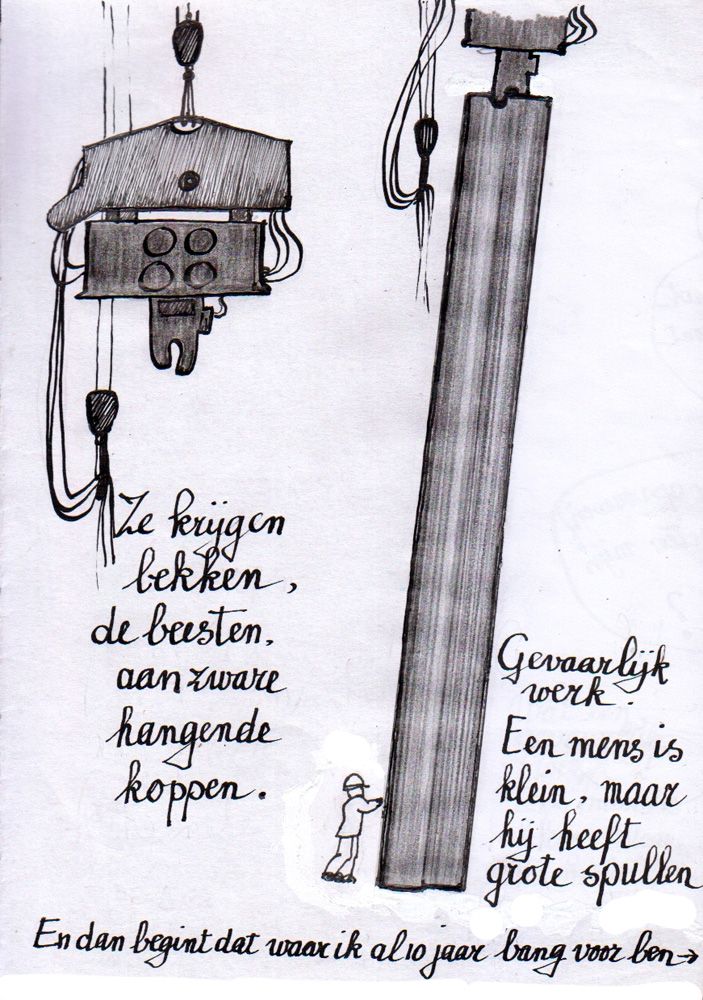 Ze krijgen
bekken,
de beesten,
aan zware
hangende
koppen.
Gevaarlijk
werk.
Een mens is
klein, maar
hij heeft
grote spullen
En dan begint dat waar ik al 10 jaar bang voor ben→